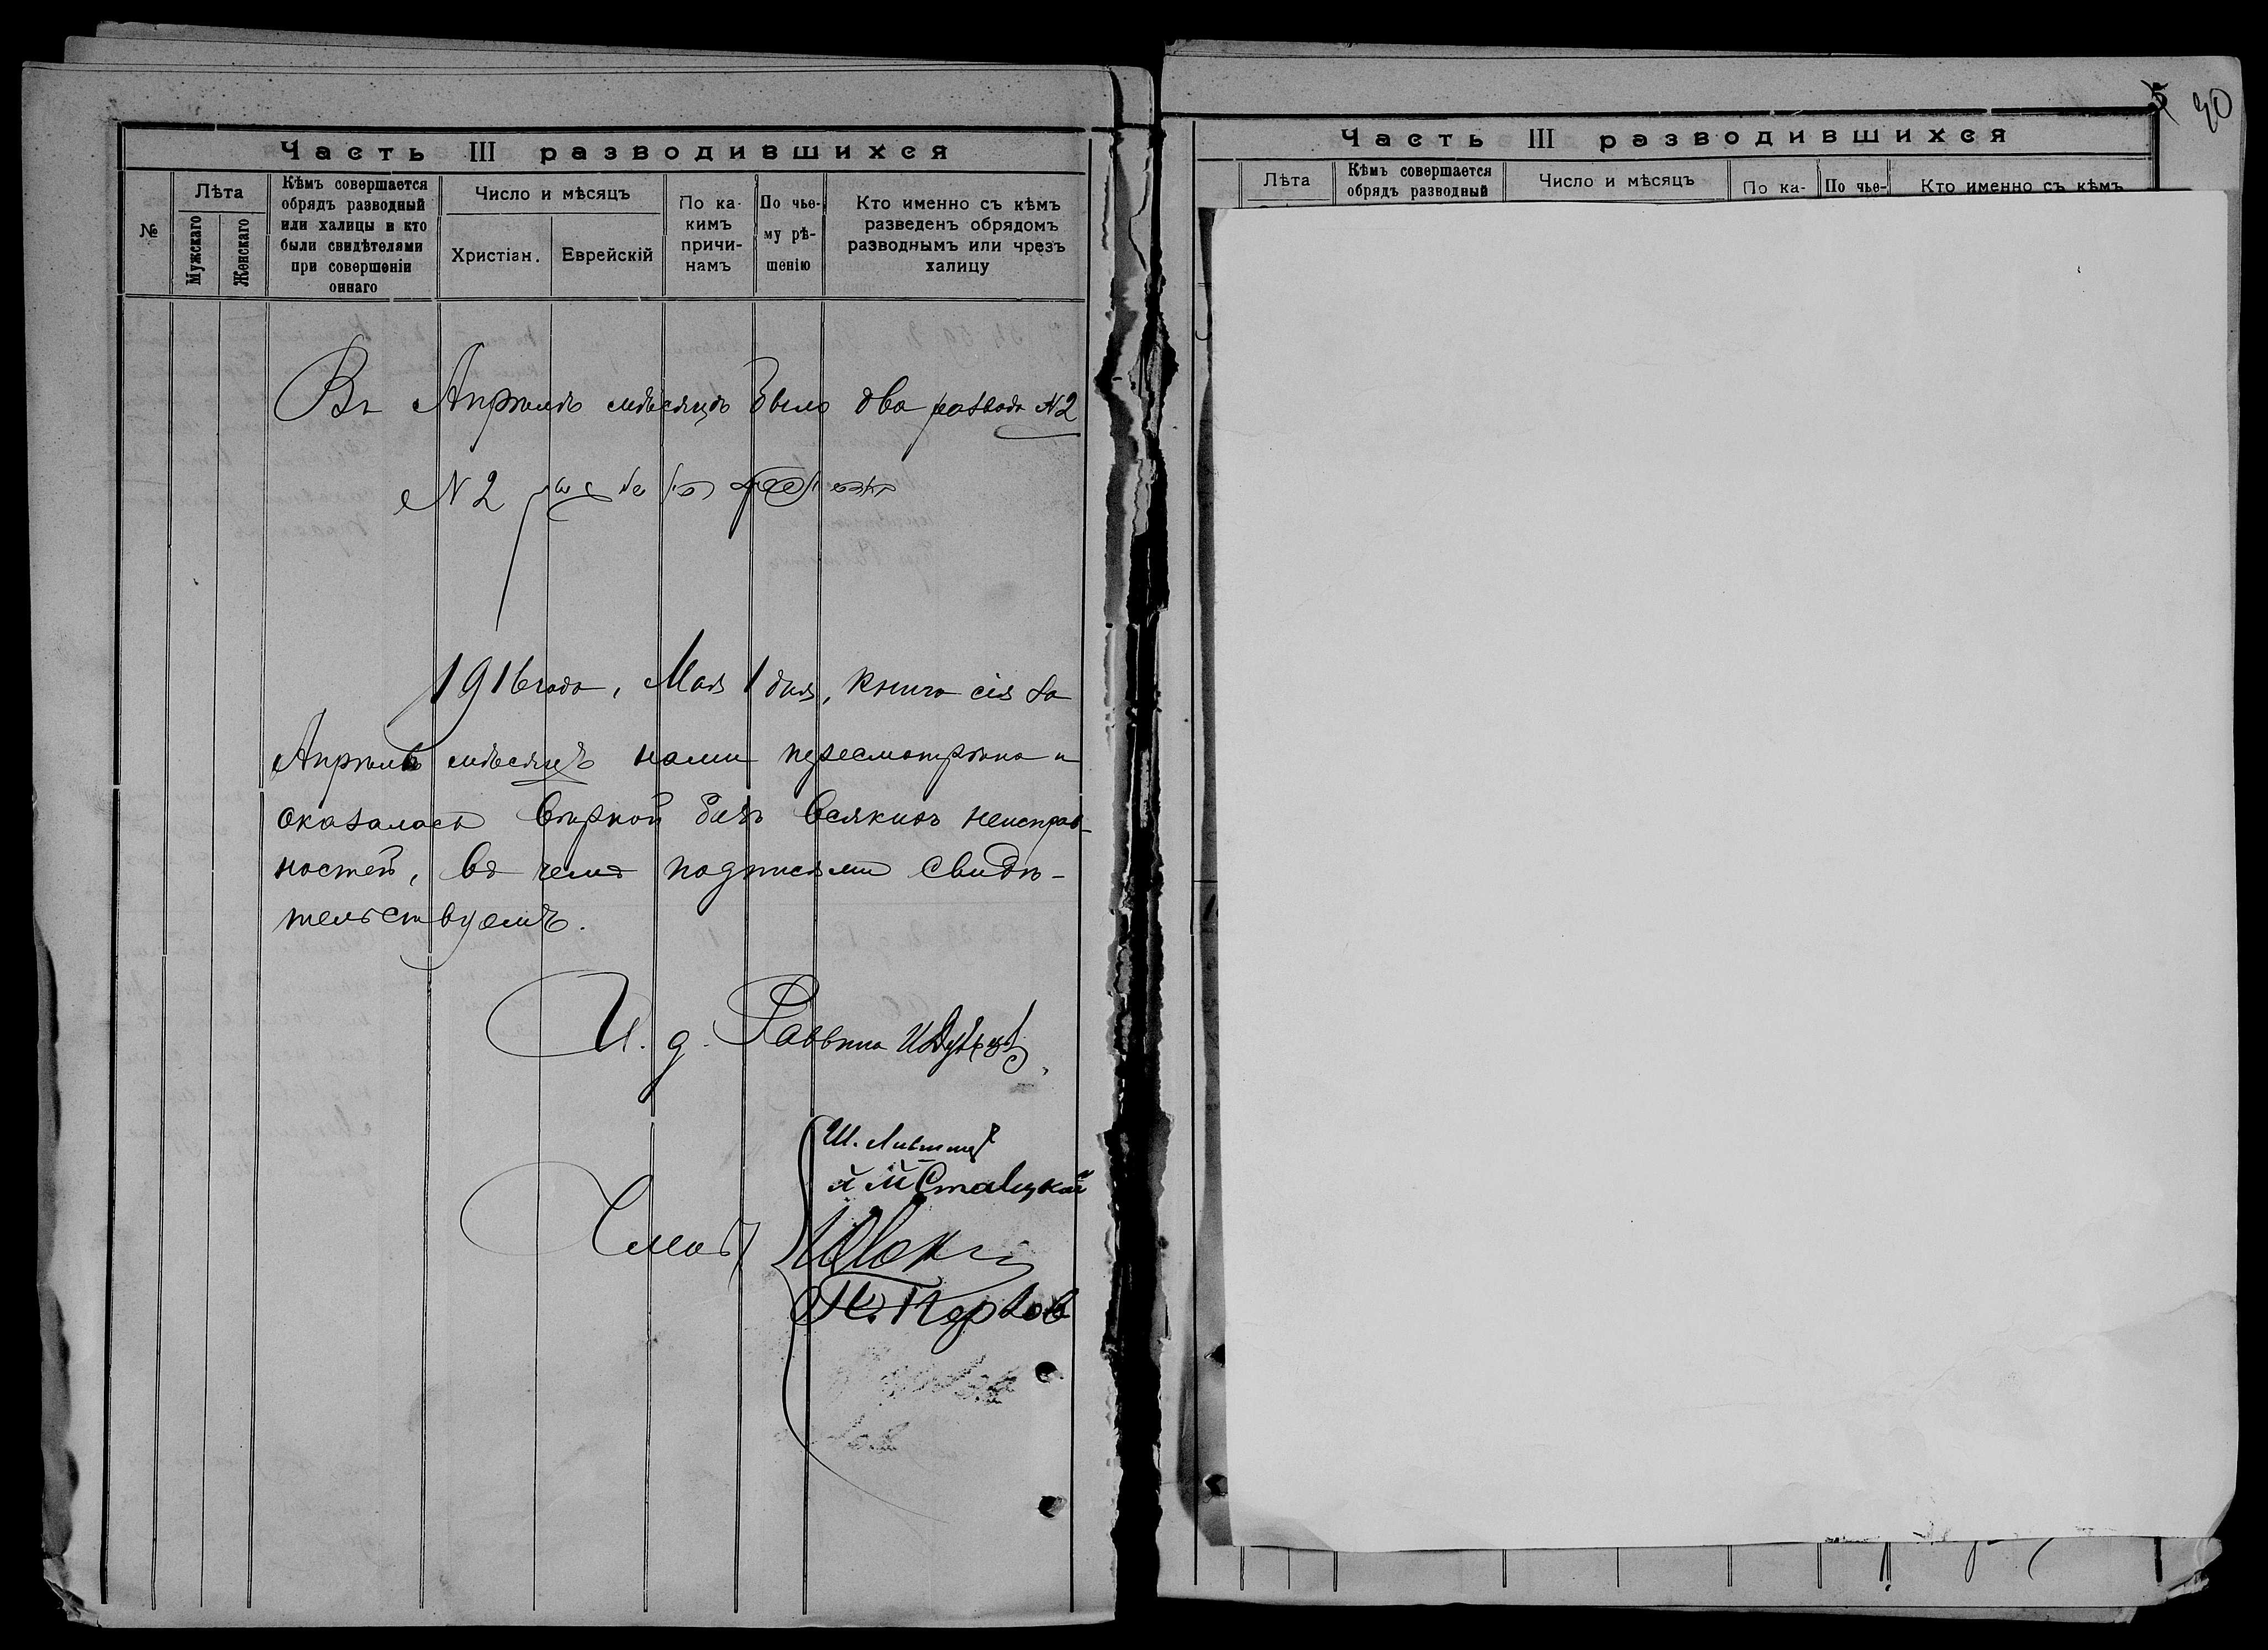 Часть III разводившихся
№
Лѣта
Мужскаго
Женскаго
Кѣмъ совершается
обрядъ разводный
или халицы и кто
были свидѣтелями
при совершеніи
оннаго
Число и мѣсяцъ
Христіан.
Еврейскій
По ка-
кимъ
причи-
намъ
По чье-
му рѣ-
шенію
Кто именно съ кѣмъ
разведенъ обрядомъ
разводнымъ или чрезъ
халицу
Въ Апрѣлѣ мѣсяцѣ было два развода №2
№2
1916 года, Мая 1 дня, книга сія за
Апрѣль мѣсяцъ нами пересмотрѣна и
оказалась вѣрной безъ всякихъ неисправ-
ностей, въ чемъ подписями свидѣ-
тельствуемъ.
И. д. Раввина
Ш. Лившиц
М Ставицкий
5
20
Часть III разводившихся
Лѣта
Кѣмъ совершается
обрядъ разводный
Число и мѣсяцъ
По ка-
По чье-
Кто именно съ кѣмъ